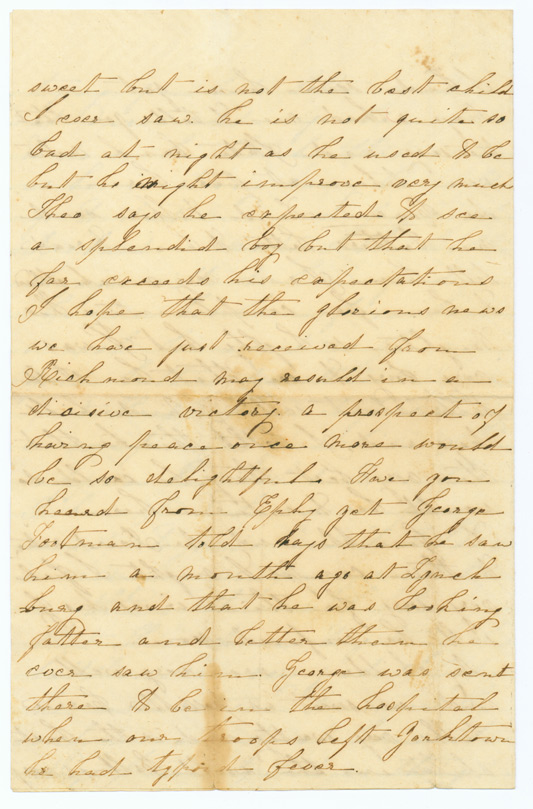 sweet but is not the best child
I ever saw. he is not quite so
bad at night as he used to be
but he might improve very much
Theo says he expected to see
a splendid boy but that he
far exceeds his expectations
I hope that the glorious news
we have just received from
Richmond may result in a
dicisive victory. a prospect of
having peace once more would
be so delightful. Have you
heard from Eph yet George
told that he saw
him a month ago at Lynch
burg and that he was looking
fatter and better than he
ever saw him. George was sent
there to be in the hospital
when our troops left Yorktown
he had typoid fever.